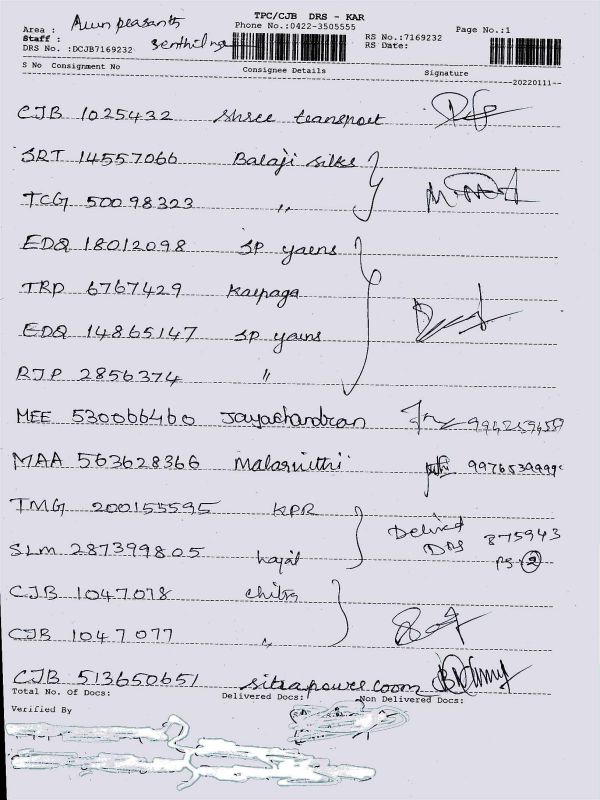 TPC/CJB DRS - KAR
Phone No.:0422-3505555
Area : Arun prasanth
Staff : Senthil
DRS No. :DCJB7169232
RS No.:7169232
RS Date:
Page No.:1
S No Consignment No Consignee Details Signature
20220111
CJB 1025432 Shree transport
SRT 14557066 Balaji silks
TCG 50098323 "
EDQ 18012098 SP yarns
TRP 6767429 Karpaga
EDQ 14865147 SP yarns
RJP 2856374 "
MEE 530066460 Jayachandran
MAA 563628366 Malarvithi
TMG 200155595 KPR
SLM 287399805
875943
CJB 1047078 Chitra
CJB 1047077 "
CJB 513650651
Total No. of Docs: Delivered Docs: Non Delivered Docs:
Verified By